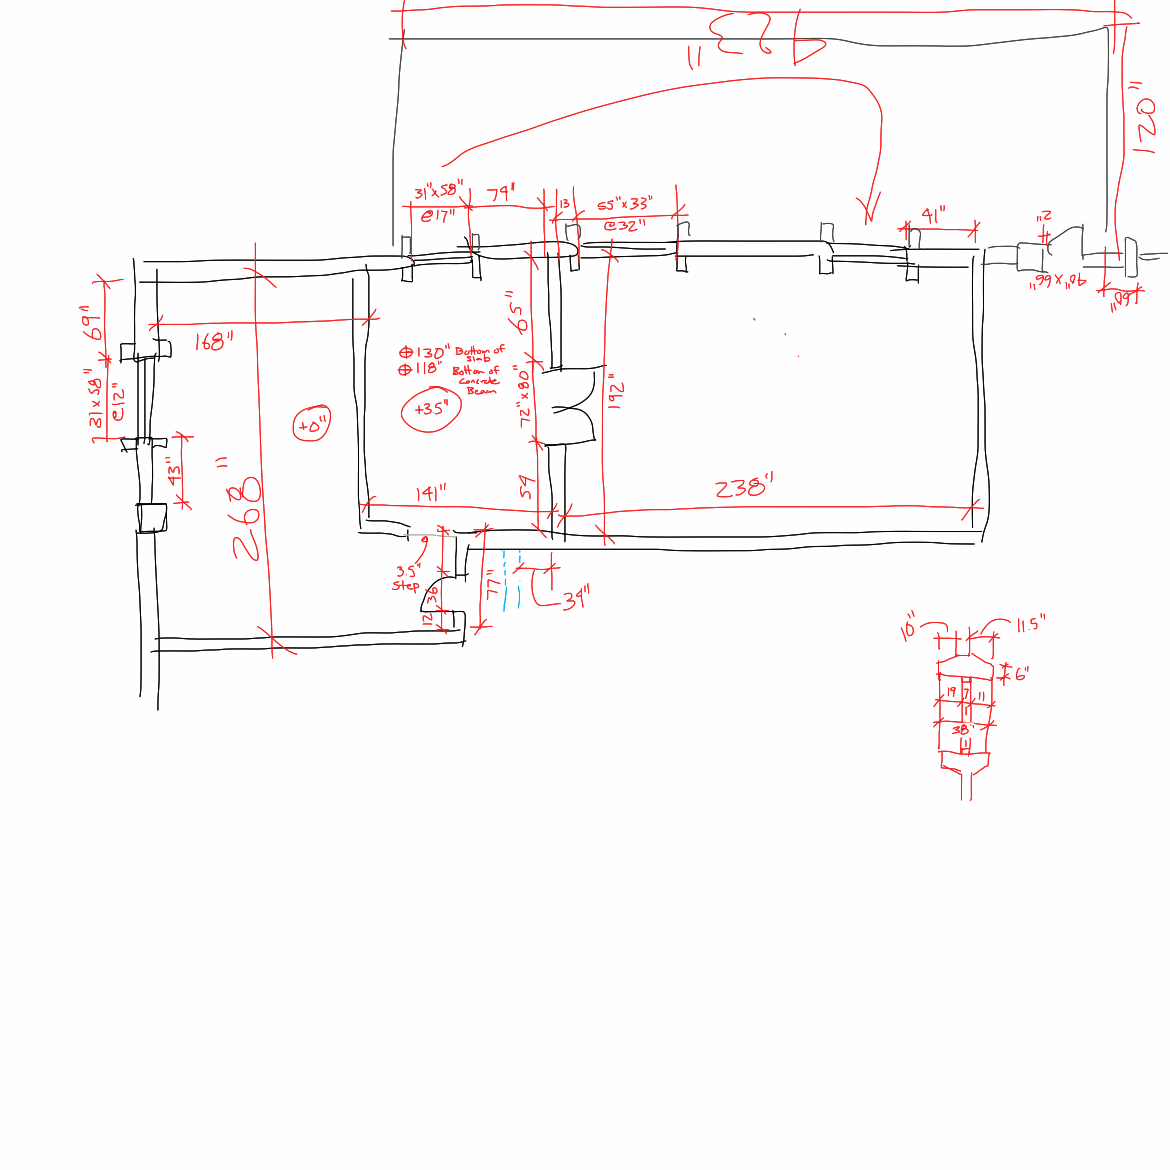 120"
31"x58"
@17"
74"
13
55"x33"
@32"
41"
2"
69"
168"
31x58"
@12"
65"
130" Bottom of
Slab
118" Bottom of
Concrete
Beam
72"x80"
192"
+0"
+3.5"
43"
268"
141"
54
238"
3.5"
Step
36
12
77"
34"
10"
11.5"
6"
19
7
11
38"